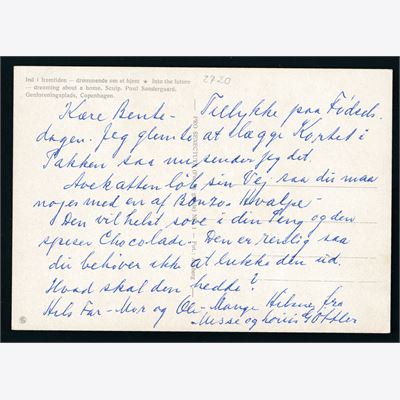 Ind i fremtiden – drømmende om et hjem ★ Into the future
— dreaming about a home. Sculp. Poul Søndergaard.
Genforeningsplads, Copenhagen.
2720
Kære Bente - Tillykke paa Føds.
dagen. Jeg glemte at lægge Kortet i
Pakken saa nu sender jeg det.
løb sin Vej saa du maa
nøjes med en af Bonzos Hvalpe -
Den vil helst sove i din Seng og den
spiser Chocolade. Den er renlig saa
du behøver ikke at lukke den ud.
Hvad skal den hedde?
Hils Far - Mor og Ole - Mange Hilsner fra
Misse og Louis Göttler